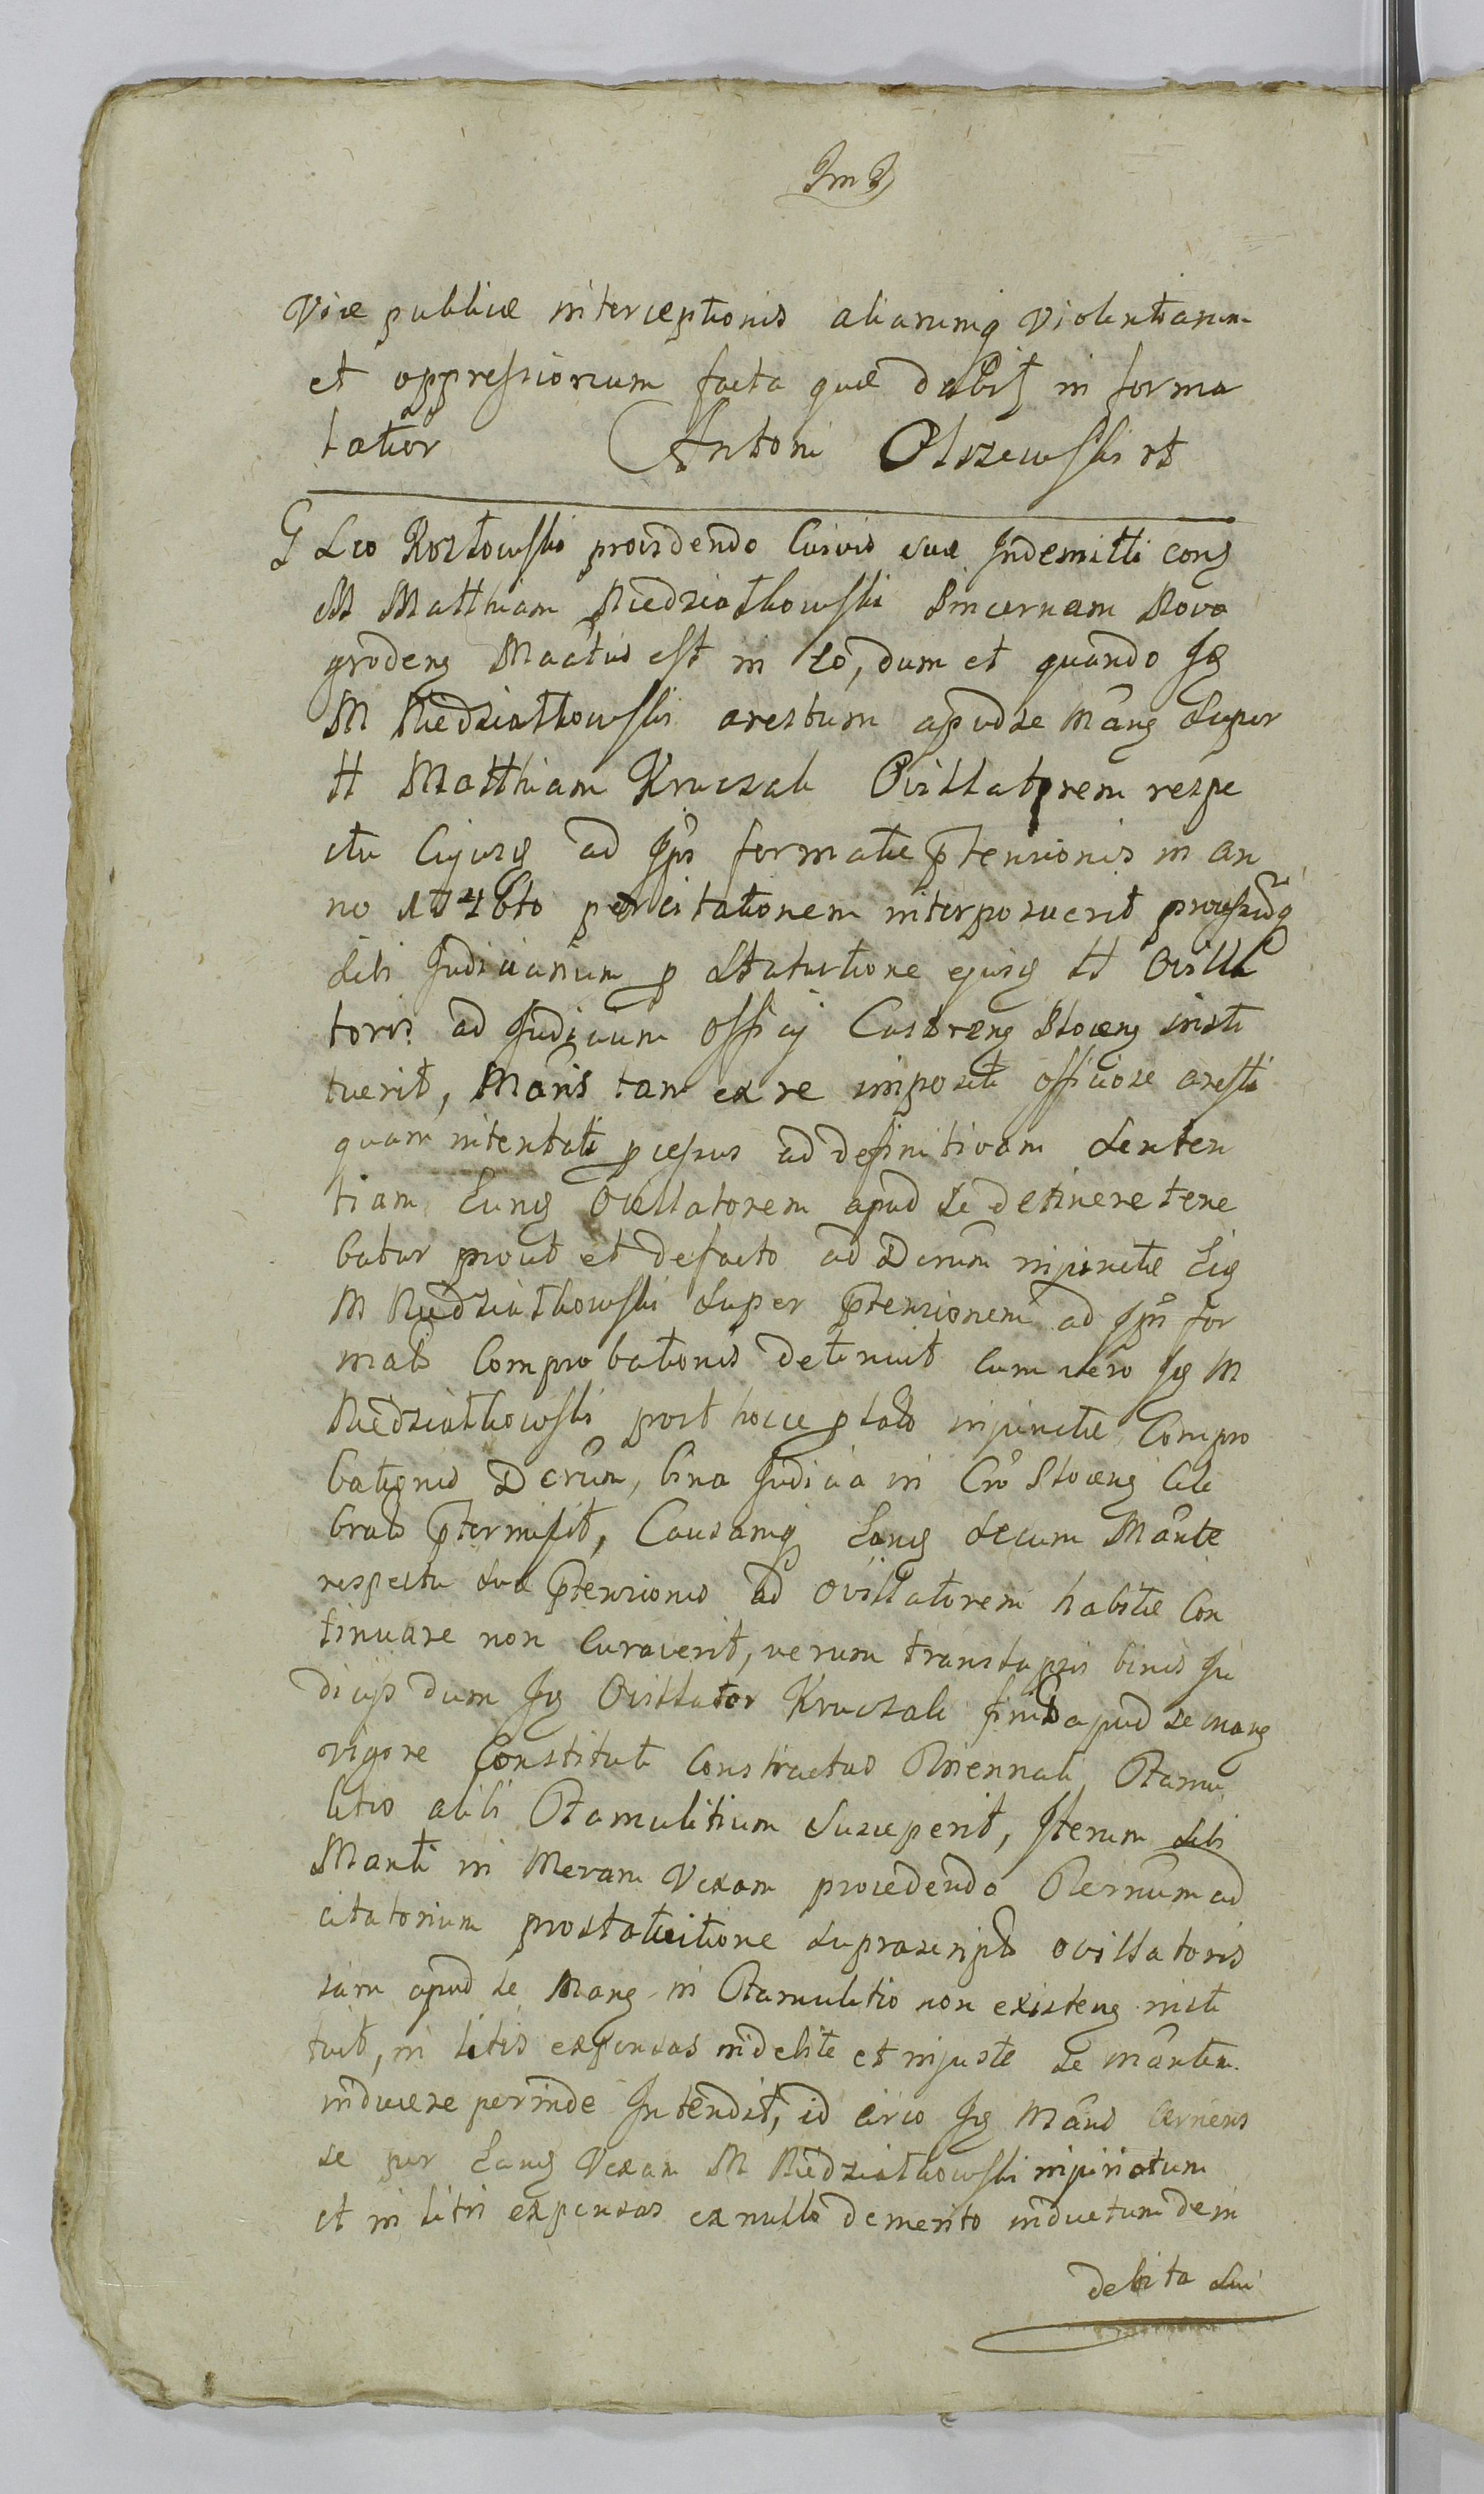 Viæ publicæ interceptionis aliarumq violentiarum
et oppressionum facta quæ dabit in forma
latior Antoni Olszewski rt
G Leo Kozłowski providendo Cuivis suæ Indemitti cong
M Matthiam Niedziałkowski Pincernam Novo
grodeng Mactus est in eo, dum et quando Ig
M Niedziałkowski arestum apud se Mang super
H Matthiam Kruczak Ovillatorem respe
ctu Cujusg ad Ipm formatæ ptensionis in an
no 1746to per citationem interposuerit
sibi Judiciarium p Statuitione ejusg H Ovilla
toris ad Judicium Officij Castreng Stoceng insti
tuerit, Mans tam ex re impositi officiose aresti
quam intentati pcessus ad definitivam Senten
tiam Eung Ovillatorem apud se detinere tene
batur prout et defacto ad Derum injunctæ Eig
M Niedziałkowski super ptensionem ad Ipm for
mats Comprobationis detinuit cum vero Ig M
Niedziałkowski post hocce plato injunctæ Compro
bationis Derum, bina Judicia in Cro Stoceng Cele
brats ptermisit, Causamq Eang secum Mante
respectu suæ ptensionis ad Ovillatorem habitæ Con
tinuare non Curaverit, verum translapsis binis Ju
dicijs dum Ig Ovillator Kruczak finito apud se mang
vigore Constituti Contractus Triennali Famu
litio alibi Famulitium susceperit, Iterum sibi
Manti in Meram Vexam procedendo Ternum ad
citatorium pro statuitione suprascripti ovillatoris
iam apud se Mang in Famulitio non existeng insti
tuit, in litis expensas indebite et injuste se mantem
inducere perinde Intendit, id circo Ig Mans Cernens
se per Eang Vexam M Niedziałkowski injuriatum
et in litis expensas ex nullo demerito inductum de in
debita sui